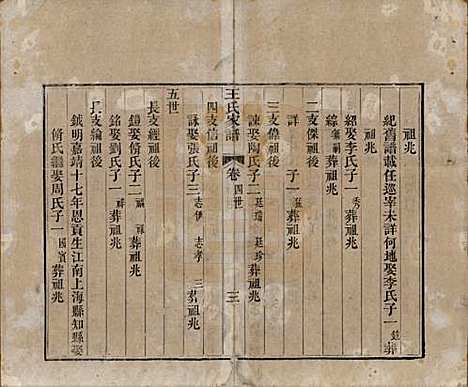 祖兆
紀舊譜載任巡宰未詳何地娶李氏子一 葬
祖兆
經娶李氏子一 秀 葬祖兆
綜 嗣 葬祖兆
二支傑祖後
詳 子一 葬祖兆
三支偉祖後
諫娶陶氏子二 廷瑞 廷珍 葬祖兆
王氏家譜 卷 四世 三
四支信祖後
詠娶張氏子三 志伊 志孝 三 葬祖兆
五世
長支經祖後
鎧娶脩氏子二 葬祖兆
銘娶劉氏子一 葬祖兆
長支綸祖後
鉞明嘉靖十七年恩貢生江南上海縣知縣娶
脩氏繼娶周氏子一 國賓 葬祖兆